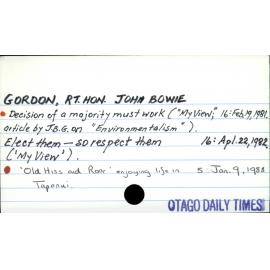 GORDON, RT. HON. JOHN BOWIE
Decision of a majority must work ("My View," 16: Feb. 19, 1981,
article by J.B.G. on "Environmentalism").
Elect them — so respect them 16: Apl. 22, 1982
('My View').
'Old Hiss and Roar' enjoying life in 5: Jan. 9,
Tapanui.
OTAGO DAILY TIMES